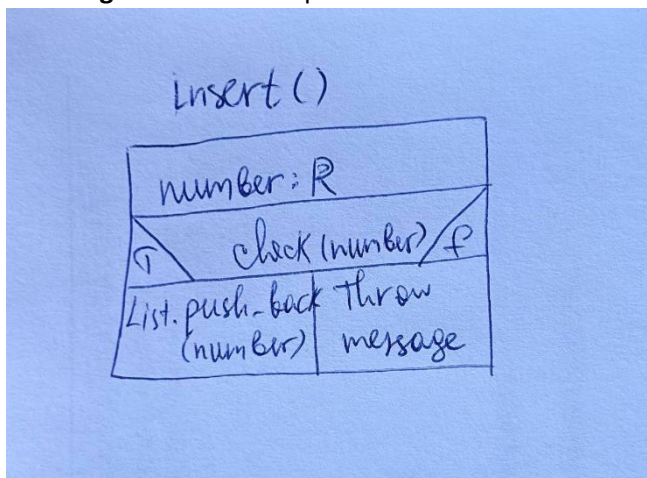 insert()
number: R
T check(number) f
List.push_back throw
(number) message